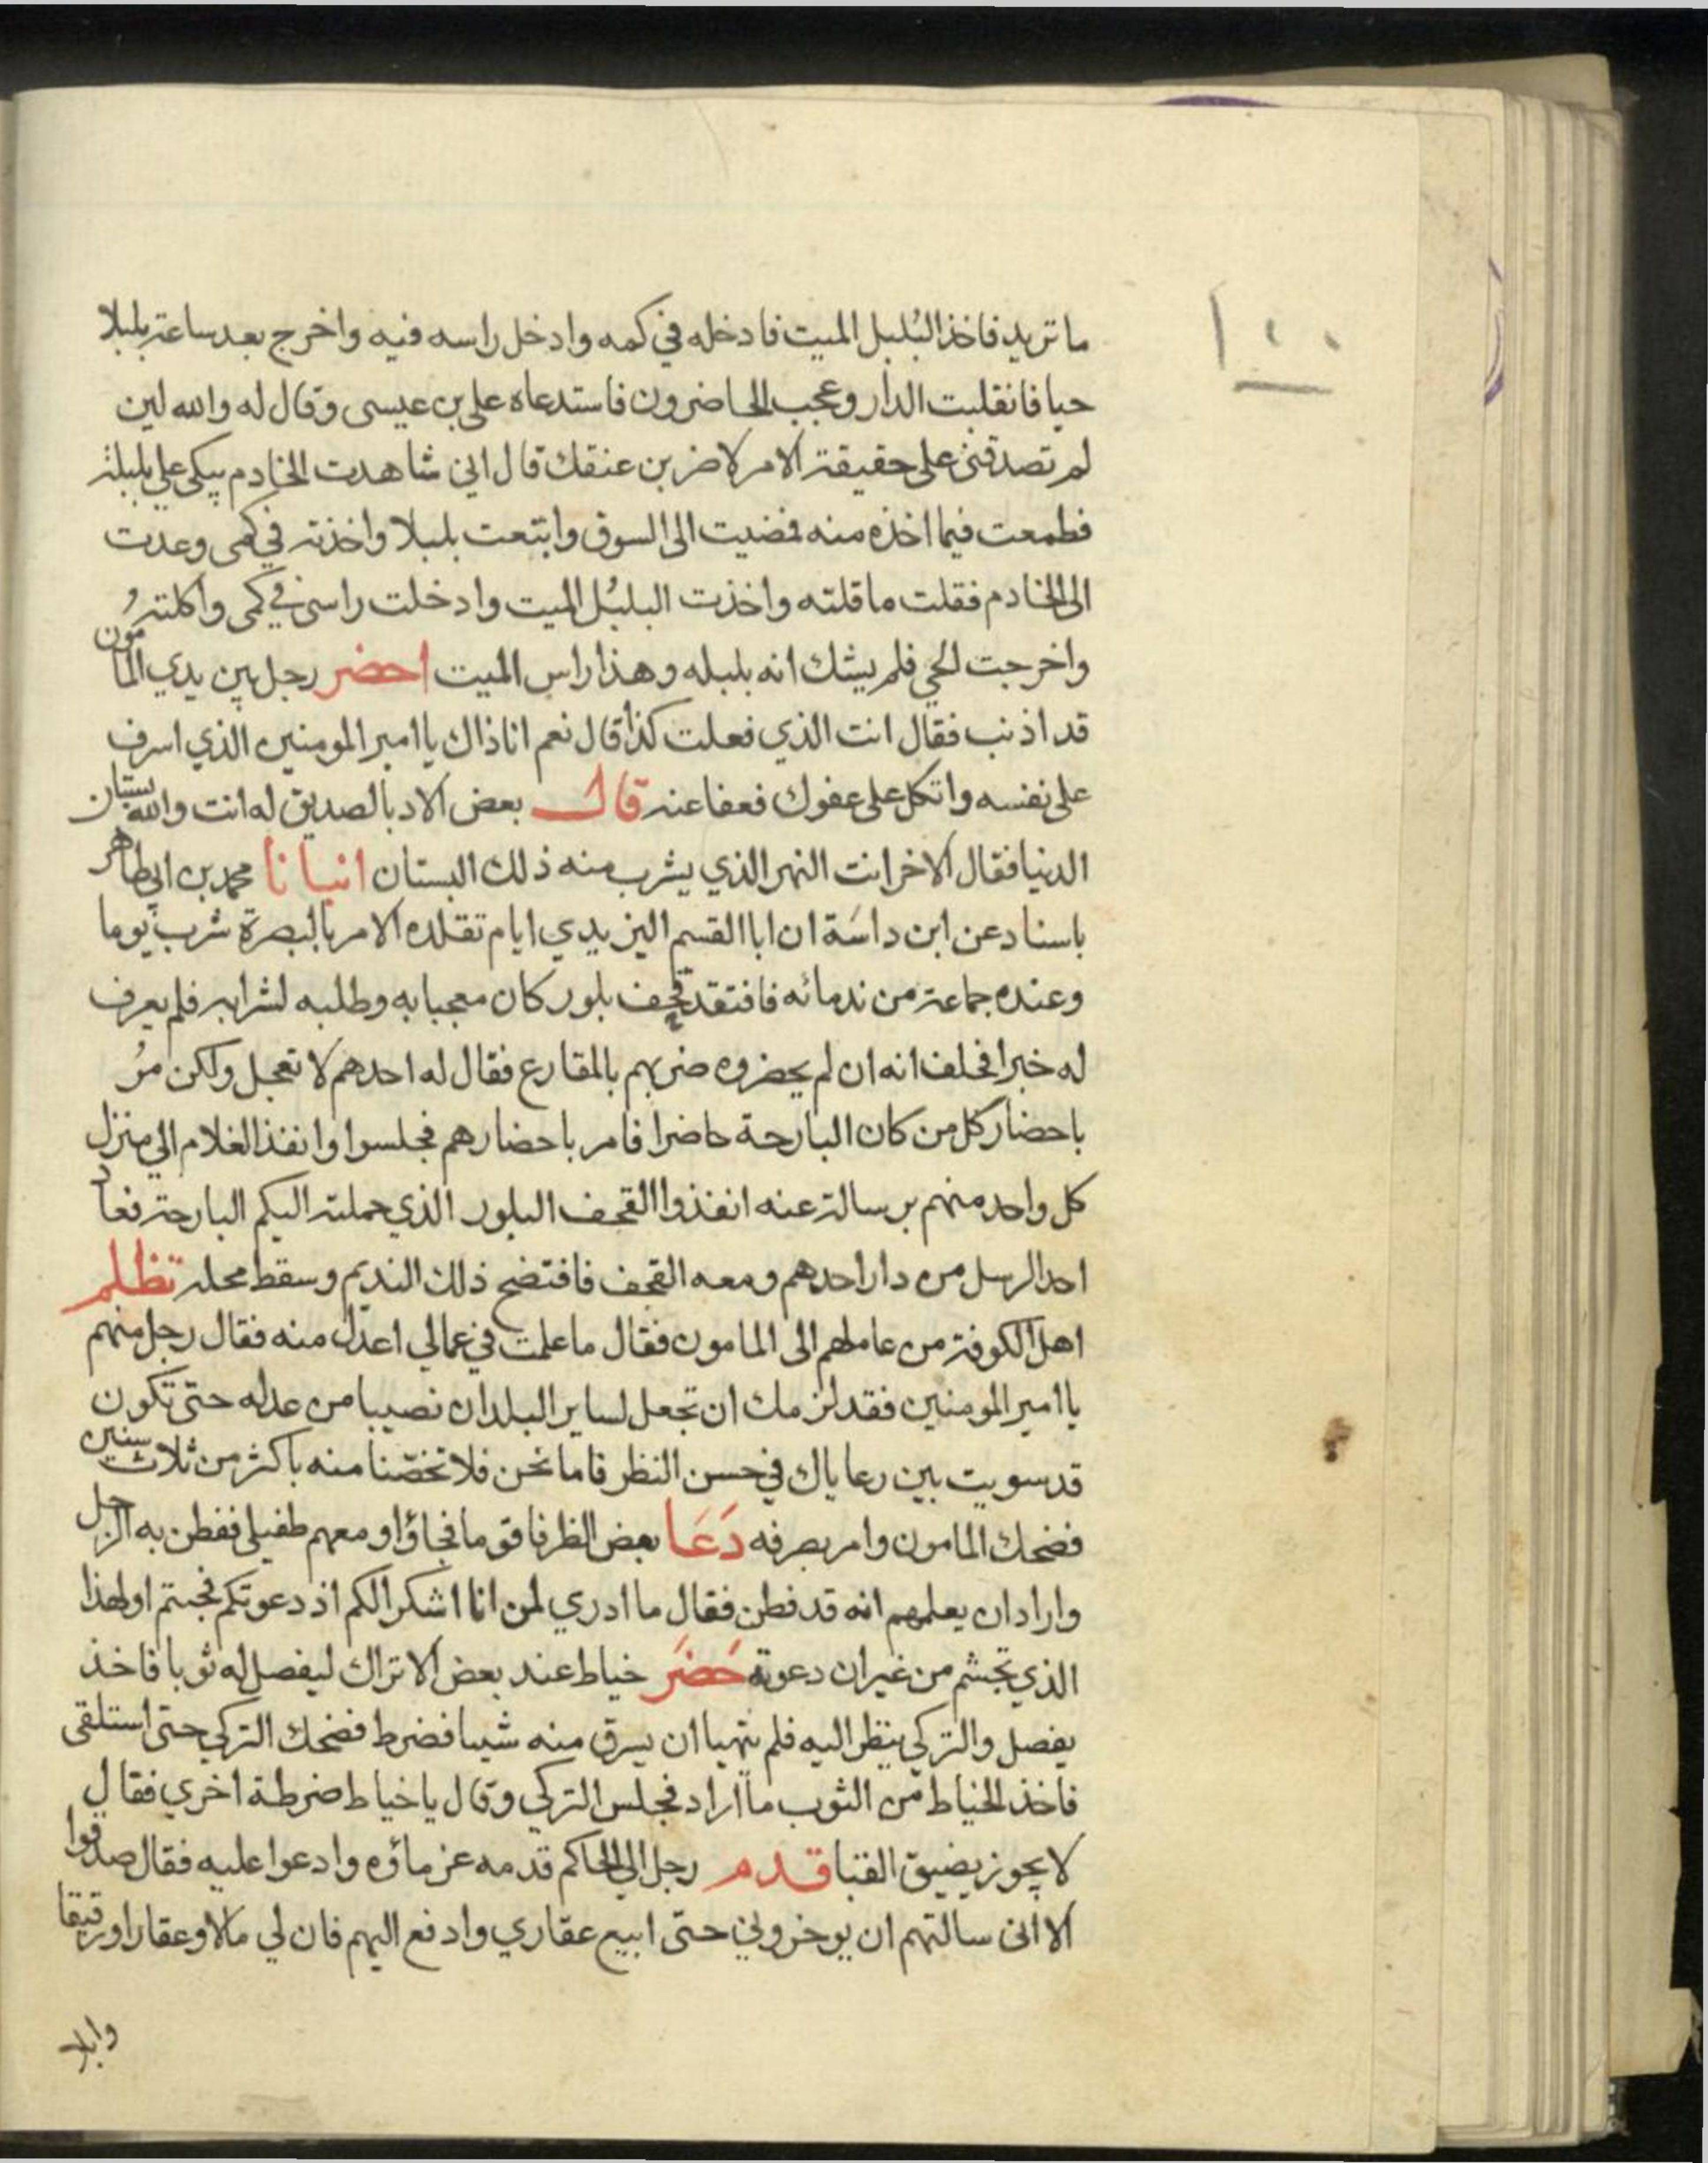 ١٠٠
ما تريد فاخذ البُلبل الميت فادخله في كمه وادخل راسه فيه واخرج بعد ساعة بلبلا
حيا فانقلبت الدار وعجب الحاضرون فاستدعاه على بن عيسى وقال له والله لين
لم تصدقني على حقيقة الامر لاضربن عنقك قال اني شاهدت الخادم يبكي علي بلبلة
فطمعت فيما اخذه منه فمضيت الى السوق وابتعت بلبلا واخذته في كمى وعدت
الى الخادم فقلت ما قلته واخذت البلبُل الميت وادخلت راسى في كمى واكلتهُ
واخرجت الحي فلم يشك انه بلبله وهذا راس الميت احضر رجل بين يدي المامون
قد اذنب فقال انت الذي فعلت كذا قال نعم انا ذاك يا امير المومنين الذي اسرف
على نفسه واتكل على عفوك فعفا عنه قال بعض الادبا لصديق له انت والله بستان
الدنيا فقال الاخر انت النهر الذي يشرب منه ذلك البستان انبانا محمد بن ابي طاهر
باسناد عن ابن داسَة ان ابا القسم اليزيدي ايام تقلده الامر بالبصرة شرب يوما
وعنده جماعة من ندمائه فافتقد قحف بلور كان معجبا به وطلبه لشرابه فلم يعرف
له خبرا فحلف انه ان لم يحضروه ضربهم بالمقارع فقال له احدهم لا تعجل ولكن مرُ
باحضار كل من كان البارحة حاضرا فامر باحضارهم فجلسوا وانفذ الغلام الي منزل
كل واحد منهم برسالة عنه انفذوا القحف البلور الذي حملته اليكم البارحة فعاد
احد الرسل من دار احدهم ومعه القحف فافتضح ذلك النديم وسقط محله تظلم
اهل الكوفة من عاملهم الى المامون فقال ما علمت في عمالي اعدل منه فقال رجل منهم
يا امير المومنين فقد لزمك ان تجعل لساير البلدان نصيبا من عدله حتى تكون
قد سويت بين رعاياك في حسن النظر فاما نحن فلا تخصّنا منه باكثر من ثلاث سنين
فضحك المامون وامر بصرفه دَعَا بعض الظرفا قوما فجاؤا ومعهم طفيلي ففطن به الرجل
واراد ان يعلمهم انه قد فطن فقال ما ادري لمن انا اشكر الكم اذ دعوتكم فجيتم او لهذا
الذي تجشم من غير ان دعوته حَضَر خياط عند بعض الاتراك ليفصل له ثوبا فاخذ
يفصل والتركي ينظر اليه فلم يتهيا ان يسرق منه شيا فضرط فضحك التركي حتى استلقى
فاخذ الخياط من الثوب ما اراد فجلس التركي وقال يا خياط ضرطة اخري فقال
لا يجوز يضيق القبا قدم رجل الي الحاكم قدمه غرماؤه وادعوا عليه فقال صدقوا
الا انى سالتهم ان يوخروني حتى ابيع عقاري وادفع اليهم فان لي مالا وعقارا ورقيقا
وابلا